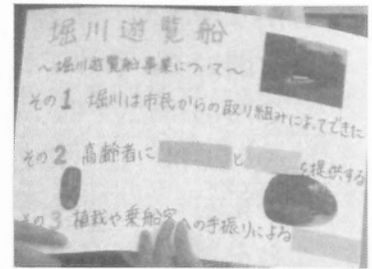 堀川遊覧船
～堀川遊覧船事業について～
その1 堀川は市民からの取り組みによってできた
その2 高齢者に と を提供する
その3 植栽や乗船客への手振りによる